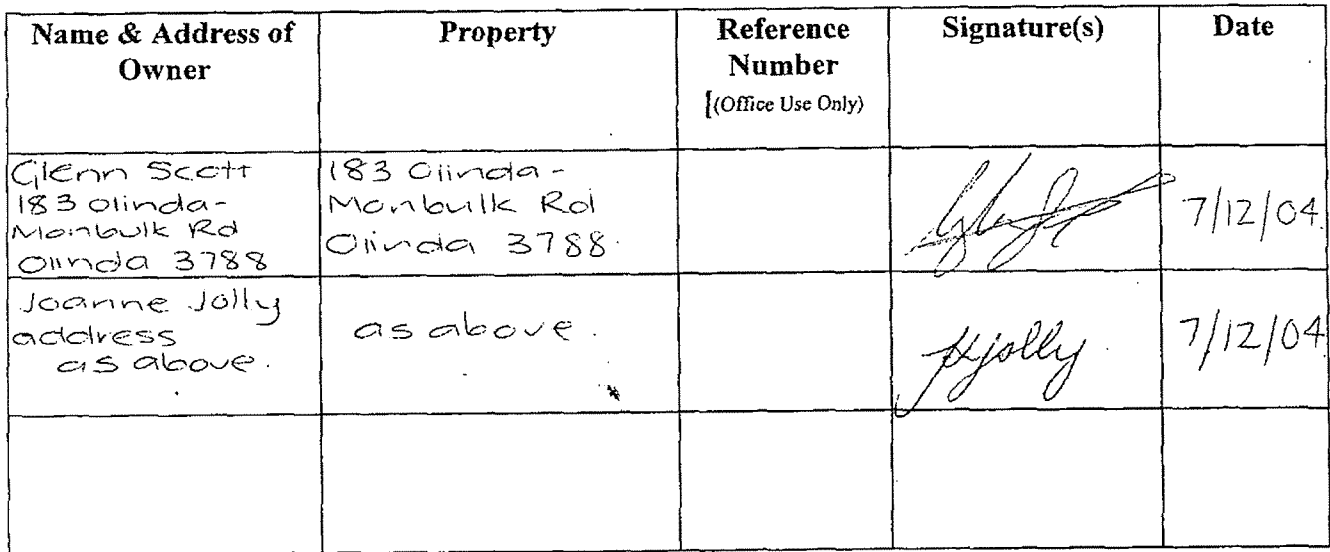 Name & Address of
Owner
Property
Reference
Number
[(Office Use Only)
Signature(s)
Date
Glenn Scott
183 Olinda-
Monbulk Rd
Olinda 3788
183 Olinda-
Monbulk Rd
Olinda 3788.
7/12/04
Joanne Jolly
address
as above.
as above.
Jolly
7/12/04